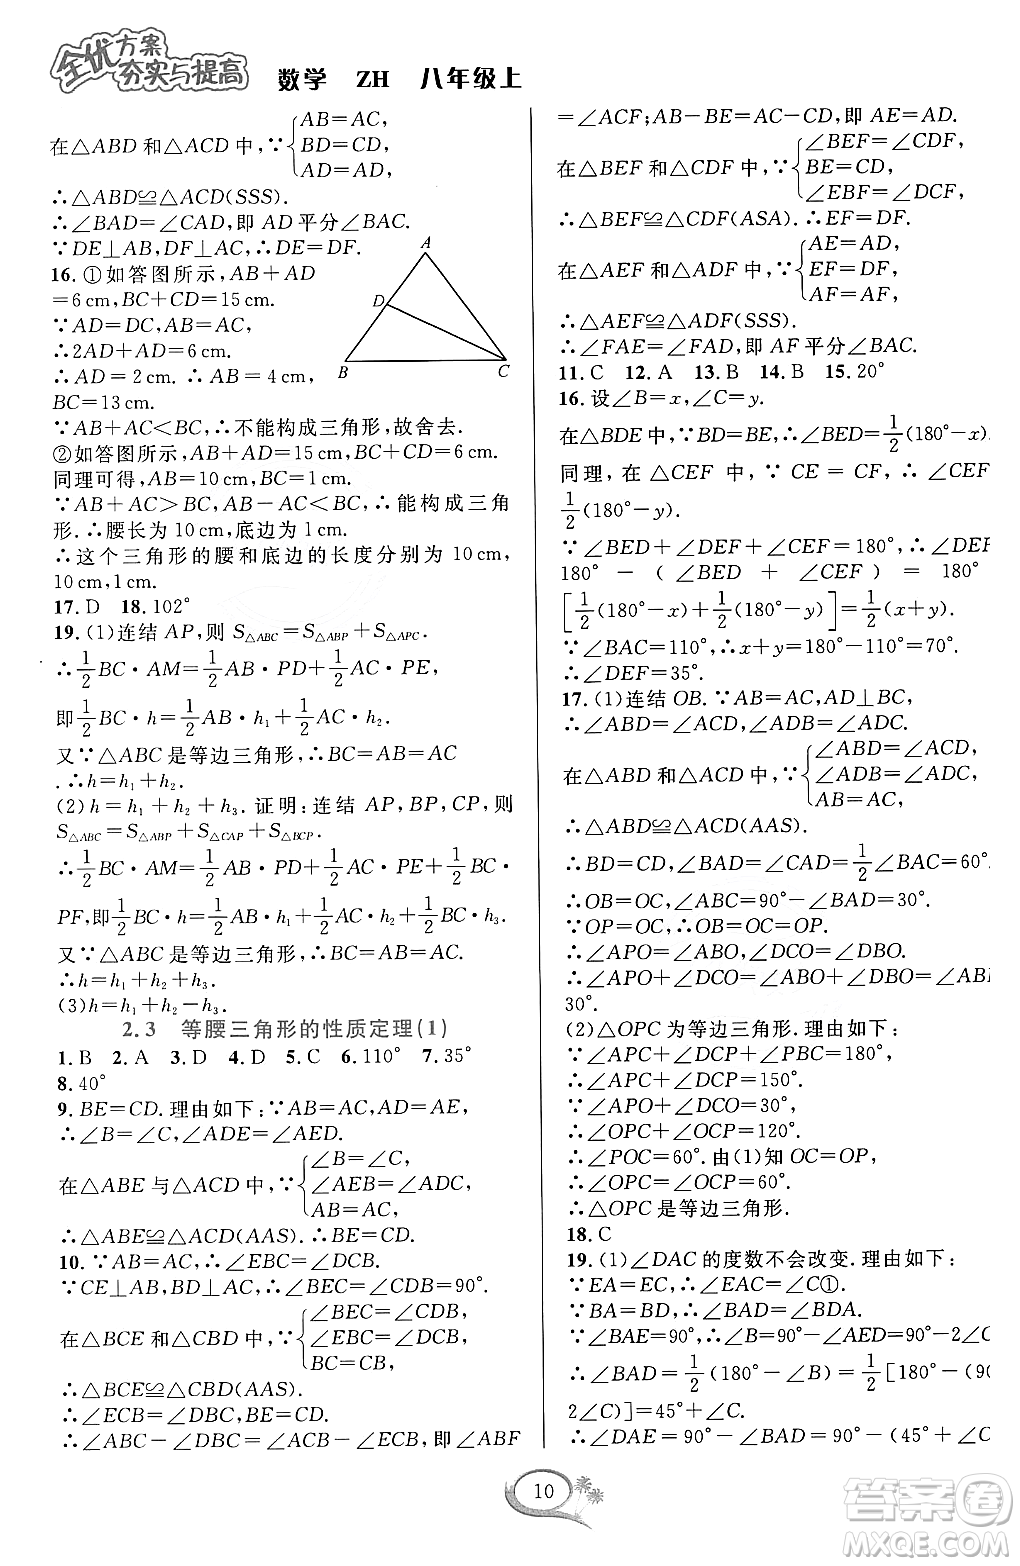 全优方案
夯实与提高
数学 ZH 八年级上
在△ABD 和△ACD 中,∵{AB=AC,
BD=CD,
AD=AD,
∴△ABD≌△ACD(SSS).
∴∠BAD=∠CAD,即 AD 平分∠BAC.
∵DE⊥AB,DF⊥AC,∴DE=DF.
16.①如答图所示,AB+AD
=6 cm,BC+CD=15 cm.
∵AD=DC,AB=AC,
∴2AD+AD=6 cm.
∴AD=2 cm. ∴AB=4 cm,
BC=13 cm.
A
D
B
C
∵AB+AC<BC,∴不能构成三角形,故舍去.
②如答图所示,AB+AD=15 cm,BC+CD=6 cm.
同理可得,AB=10 cm,BC=1 cm.
∵AB+AC>BC,AB-AC<BC,∴能构成三角
形.∴腰长为 10 cm,底边为 1 cm.
∴这个三角形的腰和底边的长度分别为 10 cm,
10 cm,1 cm.
17. D 18. 102°
19.(1)连结 AP,则 S△ABC=S△ABP+S△APC.
∴1/2BC·AM=1/2AB·PD+1/2AC·PE,
即1/2BC·h=1/2AB·h₁+1/2AC·h₂.
又∵△ABC 是等边三角形,∴BC=AB=AC
.∴h=h₁+h₂.
(2)h=h₁+h₂+h₃. 证明:连结 AP,BP,CP,则
S△ABC=S△ABP+S△CAP+S△BCP.
∴1/2BC·AM=1/2AB·PD+1/2AC·PE+1/2BC·
PF,即1/2BC·h=1/2AB·h₁+1/2AC·h₂+1/2BC·h₃.
又∵△ABC 是等边三角形,∴BC=AB=AC.
∴h=h₁+h₂+h₃.
(3)h=h₁+h₂+h₃.
2.3 等腰三角形的性质定理(1)
1. B 2. A 3. D 4. D 5. C 6. 110° 7. 35°
8. 40°
9. BE=CD.理由如下:∵AB=AC,AD=AE,
∴∠B=∠C,∠ADE=∠AED.
在△ABE 与△ACD 中,∵{∠B=∠C,
∠AEB=∠ADC,
AB=AC,
∴△ABE≌△ACD(AAS).∴BE=CD.
10. ∵AB=AC,∴∠EBC=∠DCB.
∵CE⊥AB,BD⊥AC,∴∠CEB=∠BDC=90°.
在△BCE 和△CBD 中,∵{∠BEC=∠CDB,
∠EBC=∠DCB,
BC=CB,
∴△BCE≌△CBD(AAS).
∴∠ECB=∠DBC,BE=CD.
∴∠ABC-∠DBC=∠ACB-∠ECB,即∠ABF
=∠ACF;AB-BE=AC-CD,即 AE=AD.
在△BEF 和△CDF 中,∵{∠BEF=∠CDF,
BE=CD,
∠EBF=∠DCF,
∴△BEF≌△CDF(ASA).∴EF=DF.
在△AEF 和△ADF 中,∵{AE=AD,
EF=DF,
AF=AF,
∴△AEF≌△ADF(SSS).
∴∠FAE=∠FAD,即 AF 平分∠BAC.
11. C 12. A 13. B 14. B 15. 20°
16. 设∠B=x,∠C=y.
在△BDE 中,∵BD=BE,∴∠BED=1/2(180°-x).
同理,在△CEF 中,∵CE=CF,∴∠CEF
1/2(180°-y).
∵∠BED+∠DEF+∠CEF=180°,∴∠DEF
180° - (∠BED + ∠CEF) = 180°
[1/2(180°-x)+1/2(180°-y)]=1/2(x+y).
∵∠BAC=110°,∴x+y=180°-110°=70°.
∴∠DEF=35°.
17.(1)连结 OB. ∵AB=AC,AD⊥BC,
∴∠ABD=∠ACD,∠ADB=∠ADC.
在△ABD 和△ACD 中,∵{∠ABD=∠ACD,
∠ADB=∠ADC,
AB=AC,
∴△ABD≌△ACD(AAS).
∴BD=CD,∠BAD=∠CAD=1/2∠BAC=60°.
∴OB=OC,∠ABC=90°-∠BAD=30°.
∵OP=OC,∴OB=OC=OP.
∴∠APO=∠ABO,∠DCO=∠DBO.
∴∠APO+∠DCO=∠ABO+∠DBO=∠ABD
30°.
(2)△OPC 为等边三角形.理由如下:
∵∠APC+∠DCP+∠PBC=180°,
∴∠APC+∠DCP=150°.
∵∠APO+∠DCO=30°,
∴∠OPC+∠OCP=120°.
∴∠POC=60°.由(1)知 OC=OP,
∴∠OPC=∠OCP=60°.
∴△OPC 是等边三角形.
18. C
19.(1)∠DAC 的度数不会改变.理由如下:
∵EA=EC,∴∠EAC=∠C①.
∵BA=BD,∴∠BAD=∠BDA.
∵∠BAE=90°,∴∠B=90°-∠AED=90°-2∠C
∴∠BAD=1/2(180°-∠B)=1/2[180°-(90
2∠C)]=45°+∠C.
∴∠DAE=90°-∠BAD=90°-(45°+∠C
10
答案圈
MXQE.COM